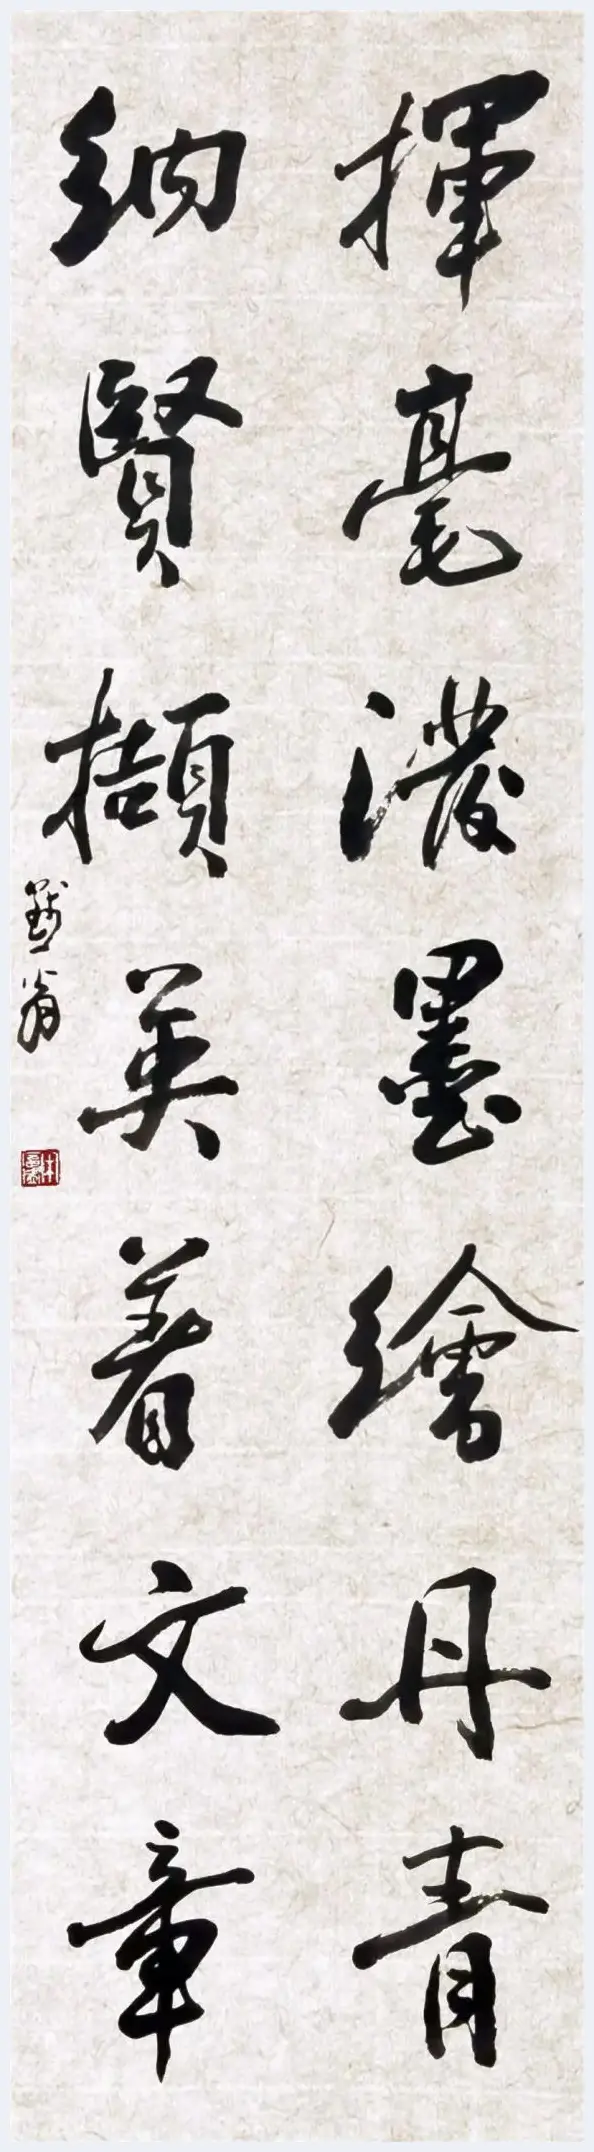 揮毫潑墨繪丹青
納賢擷英着文章
翁